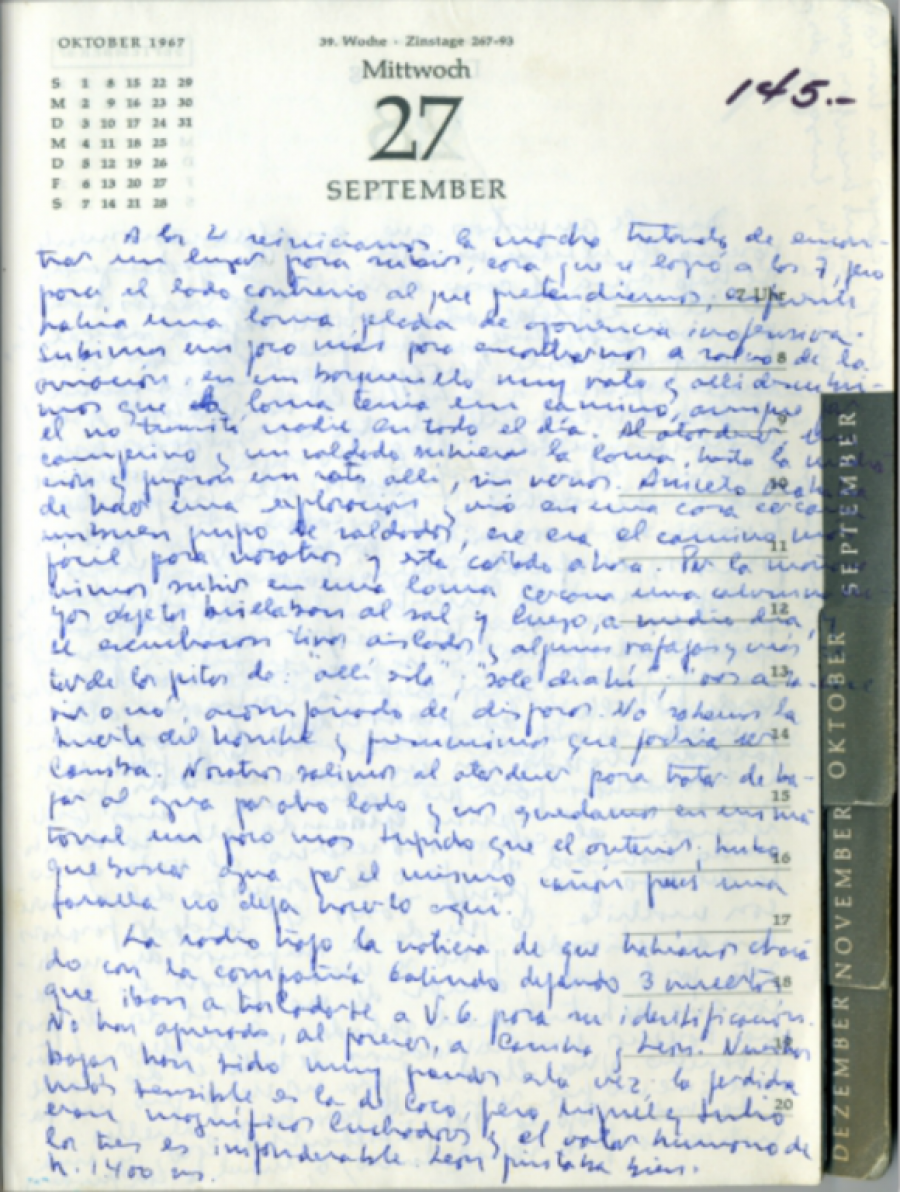 OKTOBER 1967
S 1 8 15 22 29
M 2 9 16 23 30
D 3 10 17 24 31
M 4 11 18 25
D 5 12 19 26
F 6 13 20 27
S 7 14 21 28
39. Woche · Zinstage 267-93
Mittwoch
27
SEPTEMBER
145.-
A las 4 reiniciamos la marcha tratando de encon-
trar un lugar para subir, cosa que se logró a las 7, pero
para el lado contrario al que pretendíamos; enfrente
había una loma pelada de apariencia inofensiva.
Subimos un poco más para encontrarnos a salvo de la
aviación, en un bosquecillo muy ralo y allí descubri-
mos que la loma tenía un camino, aunque por
él no transitó nadie en todo el día. Al atardecer un
campesino y un soldado subieron la loma, hasta la media
ción y jugaron un rato allí, sin vernos. Aniceto acababa
de hacer una exploración y vió en una casa cercana
un buen grupo de soldados, ese era el camino más
fácil para nosotros y está cortado ahora. Por la maña
vimos subir en una loma cercana una columna cu-
yos objetos brillaban al sol y luego, a medio día,
se escucharon tiros aislados y algunas ráfagas y más
tarde los gritos de: "allí está"; "sale de ahí"; "vas a sa-
lir o no", acompañado de disparos. No sabemos la
suerte del hombre y presumimos que podría ser
Camba. Nosotros salimos al atardecer para tratar de ba-
jar al agua por otro lado y nos quedamos en un ma
torral un poco más tupido que el anterior; hubo
que buscar agua por el mismo cañón pues una
faralla no deja hacerlo aquí.
La radio trajo la noticia de que habíamos choca
do con la compañía Galindo dejando 3 muertos
que iban a trasladarse a V.G. para su identificación.
No han apresado, al parecer, a Camba y León. Nuestras
bajas han sido muy grandes esta vez; la pérdida
más sensible es la de Coco, pero Miguel y Julio
eran magníficos luchadores y el valor humano de
los tres es imponderable. León pintaba bien.
h. 1400 ms.
7 Uhr
8
9
10
11
12
13
14
15
16
17
18
19
20
SEPTEMBER
OKTOBER
NOVEMBER
DEZEMBER